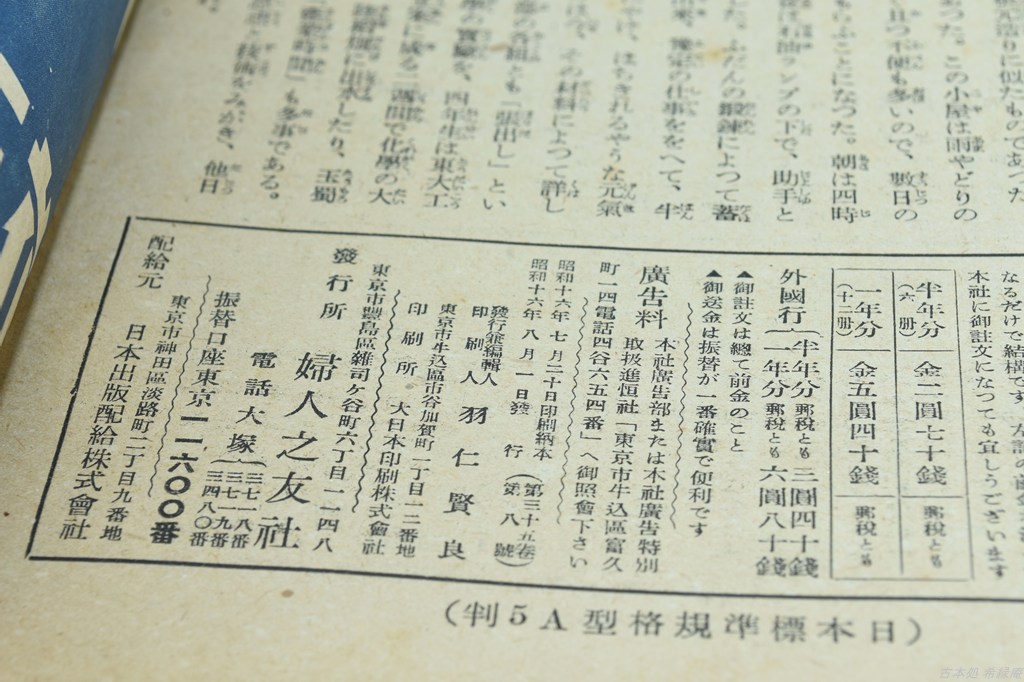 つた。この小屋は雨やどりの
且つ不便も多いので、數日の
もらふことになつた。朝は四時
石油ランプの下で、助手と
ふだんの鍛鍊によつて蓄
豫定の仕事ををへて、牛
はちきれるやうな元氣
その材料によつて詳し
各組とも「張出し」とい
四年生は東大工
に成る二週間で化學の大
に出水したり、玉蜀
も多事である。
と技術をみがき、他日
本社に御註文になつても宜しうございます
半年分(六册) 金二圓七十錢 郵稅とも
一年分(十二册) 金五圓四十錢 郵稅とも
外國行 半年分 郵稅とも 三圓四十錢
一年分 郵稅とも 六圓八十錢
▲御註文は總て前金のこと
▲御送金は振替が一番確實で便利です
廣告料 本社廣告部または本社廣告特別
取扱進恒社「東京市牛込區富久
町一四電話四谷六五四番」へ御照會下さい
昭和十六年七月二十日印刷納本
昭和十六年八月一日發行 (第三十五卷第八號)
發行兼編輯人
印刷人 羽仁賢良
東京市牛込區市谷加賀町一丁目一二番地
印刷所 大日本印刷株式會社
東京市豐島區雜司ケ谷町六丁目一一四八
發行所 婦人之友社
電話大塚
三七一八番
三七一九番
三四八〇番
振替口座東京一一六〇〇番
東京市神田區淡路町二丁目九番地
配給元 日本出版配給株式會社
(日本標準規格型A5判)
古本処 希録庵